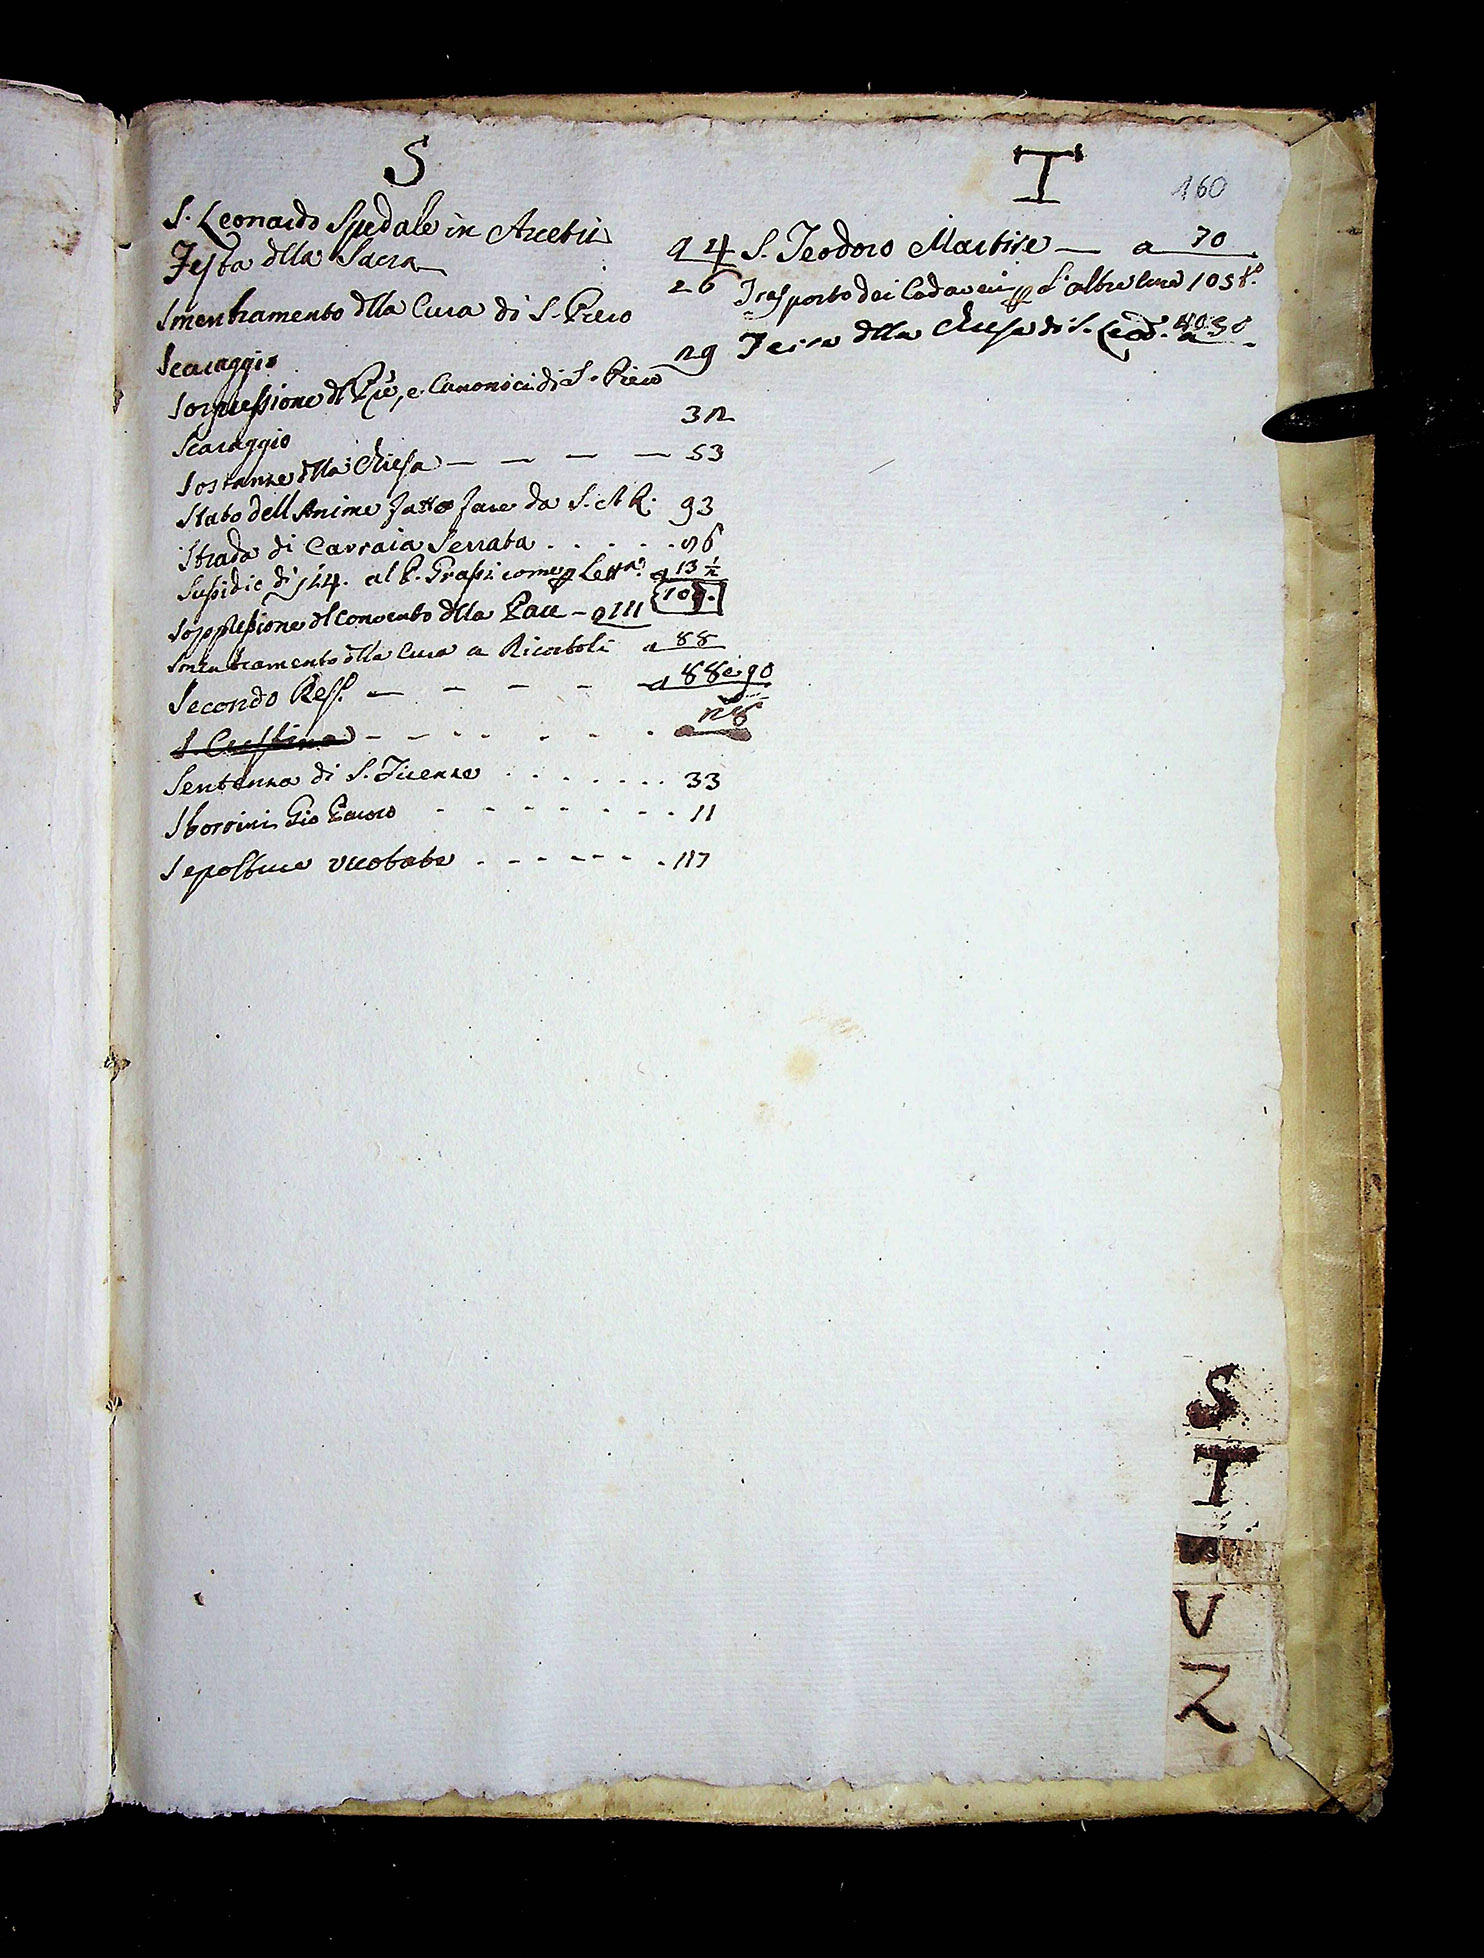 S
S. Leonardo Spedale in Arcetri 24
Festa dlla Sacra 26
Smembramento dlla Cura di S. Piero
Scaraggio 29
Soppressione dl Pie, e Canonici di S. Piero
Scaraggio 32
Sostanze dlla Chiesa — — — — 53
Stato dell Anime fatto fare da S. A R. 93
Strada di Carraia Serrata . . . . . 96
Susidio di 144. al P. Grassi come p Lett.ª a 13 ½
Soppressione dl Convento dlla Pace — a 111 109.
Smembramento dlla Cura a Ricorboli a 88
Secondo Ress. — — — — a 88 e 90
S. Cristina — — . . . . . 28
Sentenza di S. Firenze . . . . . . . 33
Sborrini Gio 11
Sepolture vicobate . - - - - - . 117
T
160
S. Teodoro Martire — a 70
Trasporto dei Cadaveri p l'altre Cure 105 tº.
Terra dlla Chiesa di S. Leod. a 50
S
T
V
Z